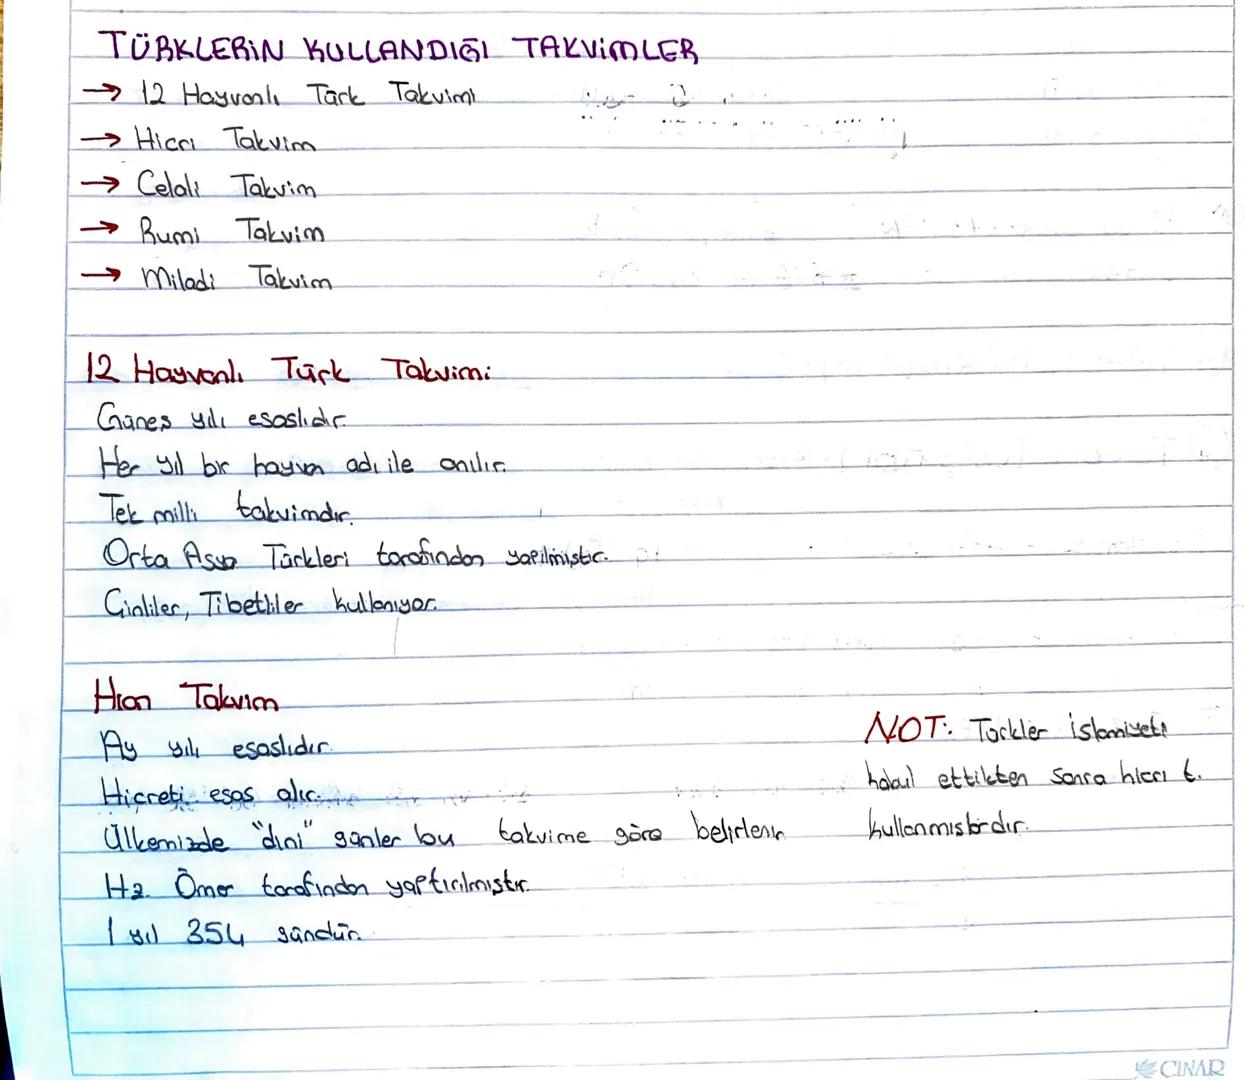 TÜRKLERİN KULLANDIĞI TAKVİMLER
→ 12 Hayvanlı Türk Takvimi
→ Hicri Takvim
→ Celali Takvim
→ Rumi Takvim
→ Miladi Takvim
12 Hayvanlı Türk Takvimi
Güneş yılı esaslıdır.
Her yıl bir hayvan adı ile anılır.
Tek milli takvimdir.
Orta Asya Türkleri tarafından yapılmıştır.
Çinliler, Tibetliler kullanıyor.
Hicri Takvim
Ay yılı esaslıdır.
Hicreti esas alır.
Ülkemizde "dini" günler bu takvime göre belirlenir
Hz. Ömer tarafından yaptırılmıştır.
1 yıl 354 gündür.
NOT: Türkler İslamiyeti
kabul ettikten sonra hicri t.
kullanmışlardır.
ÇINAR